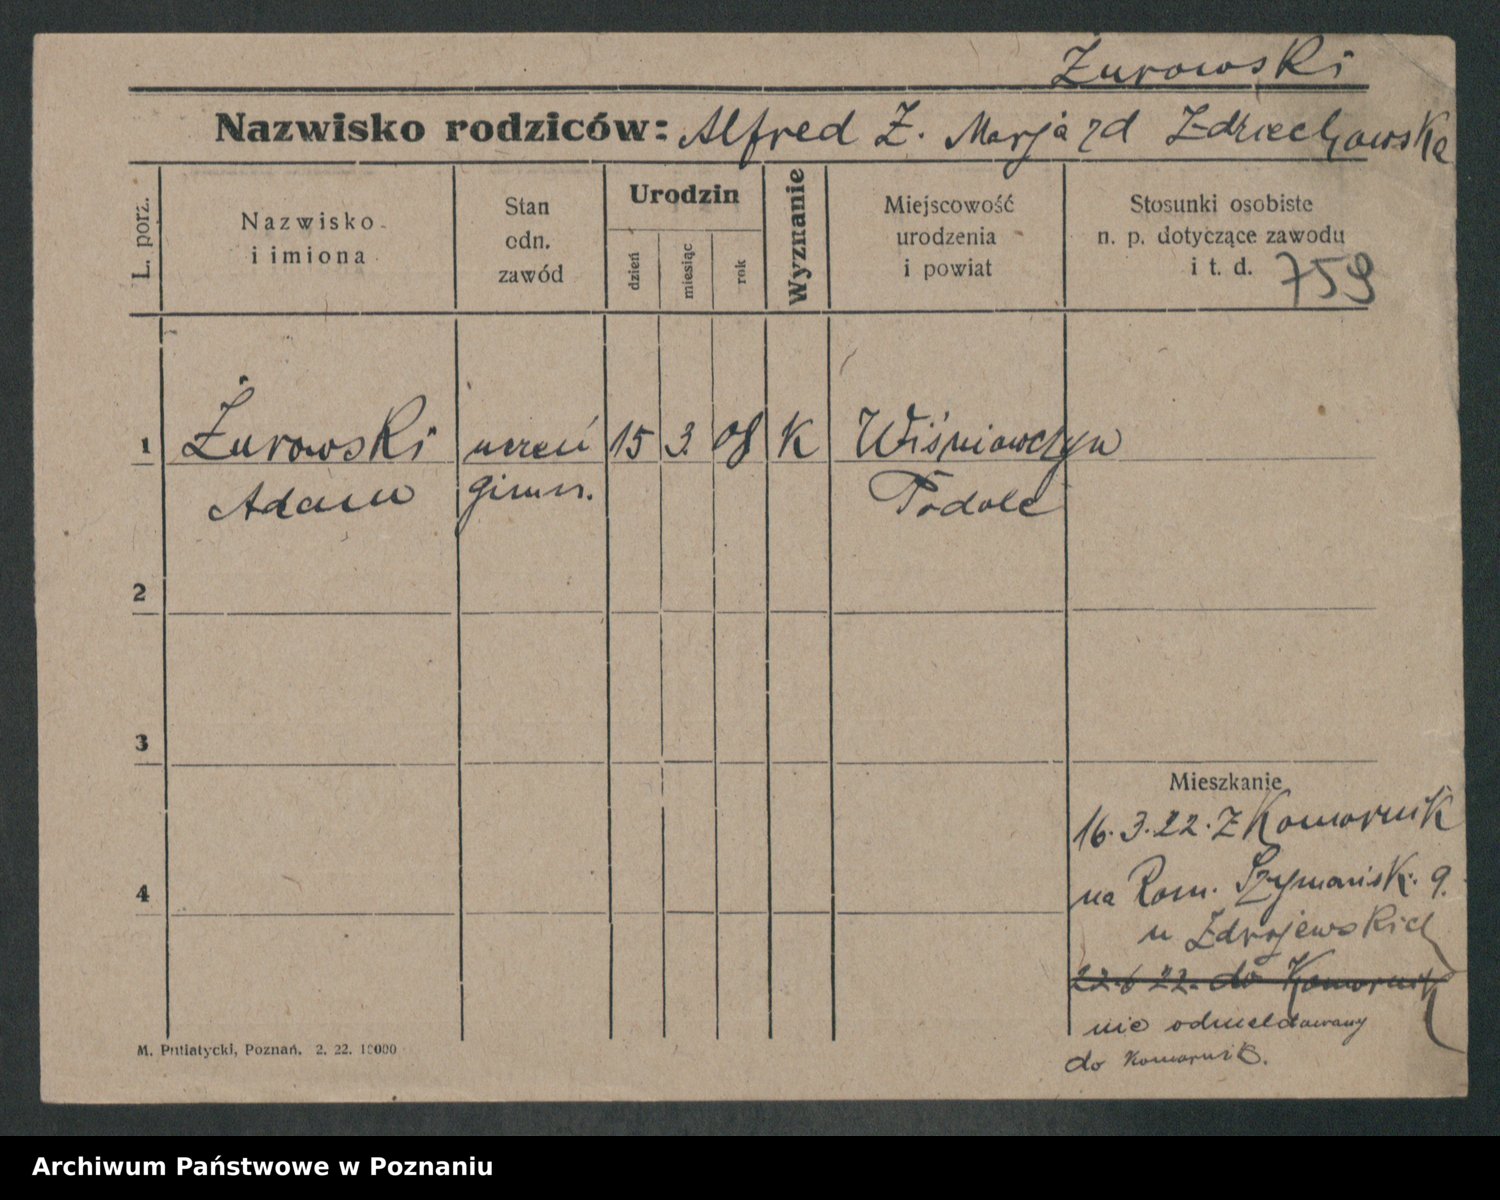 Żurowski
Nazwisko rodziców: Alfred Ż. Marja zd Zdziechowska
L. porz.
Nazwisko
i imiona
Stan
odn.
zawód
Urodzin
dzień
miesiąc
rok
Wyznanie
Miejscowość
urodzenia
i powiat
Stosunki osobiste
n. p. dotyczące zawodu
i t. d.
759
1 Żurowski uczeń 15 3. 08 K Wiśniowczyn
Adam gimn. Podole
2
3
Mieszkanie
16.3.22. z Komornik
na Rom. Szymańsk. 9.
4
u Zdrojewskich
22.6 22. do Komornik
nie odmeldowany
do Komornik.
M. Putiatycki, Poznań. 2. 22. 10000
Archiwum Państwowe w Poznaniu